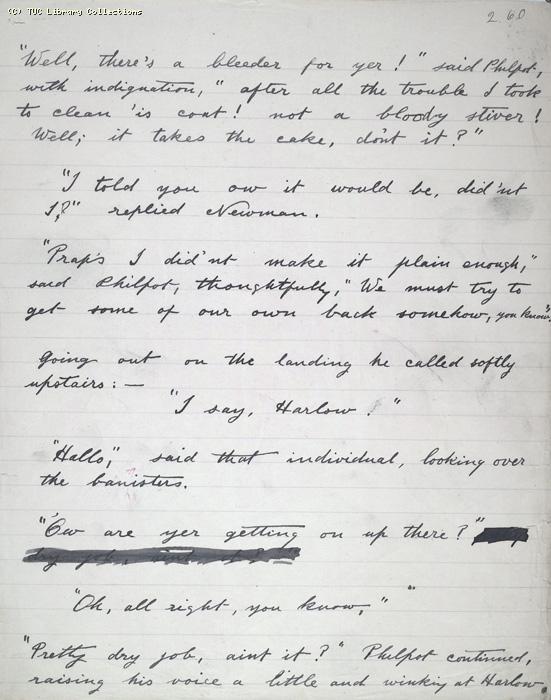 (C) TUC Library Collections
260
"Well, there's a bleeder for yer!" said Philpot,
with indignation, "after all the trouble I took
to clean 'is coat! not a bloody stiver!
Well; it takes the cake, dont it?"
"I told you ow it would be, did'nt
I?" replied Newman.
"Praps I did'nt make it plain enough,"
said Philpot, thoughtfully, "We must try to
get some of our own back somehow, you know."
Going out on the landing he called softly
upstairs: —
"I say, Harlow!"
"Hallo," said that individual, looking over
the banisters.
"'Ow are yer getting on up there?"
dry job, aint it?"
"Oh, all right, you know," "
"Pretty dry job, aint it?" Philpot continued,
raising his voice a little and winking at Harlow.